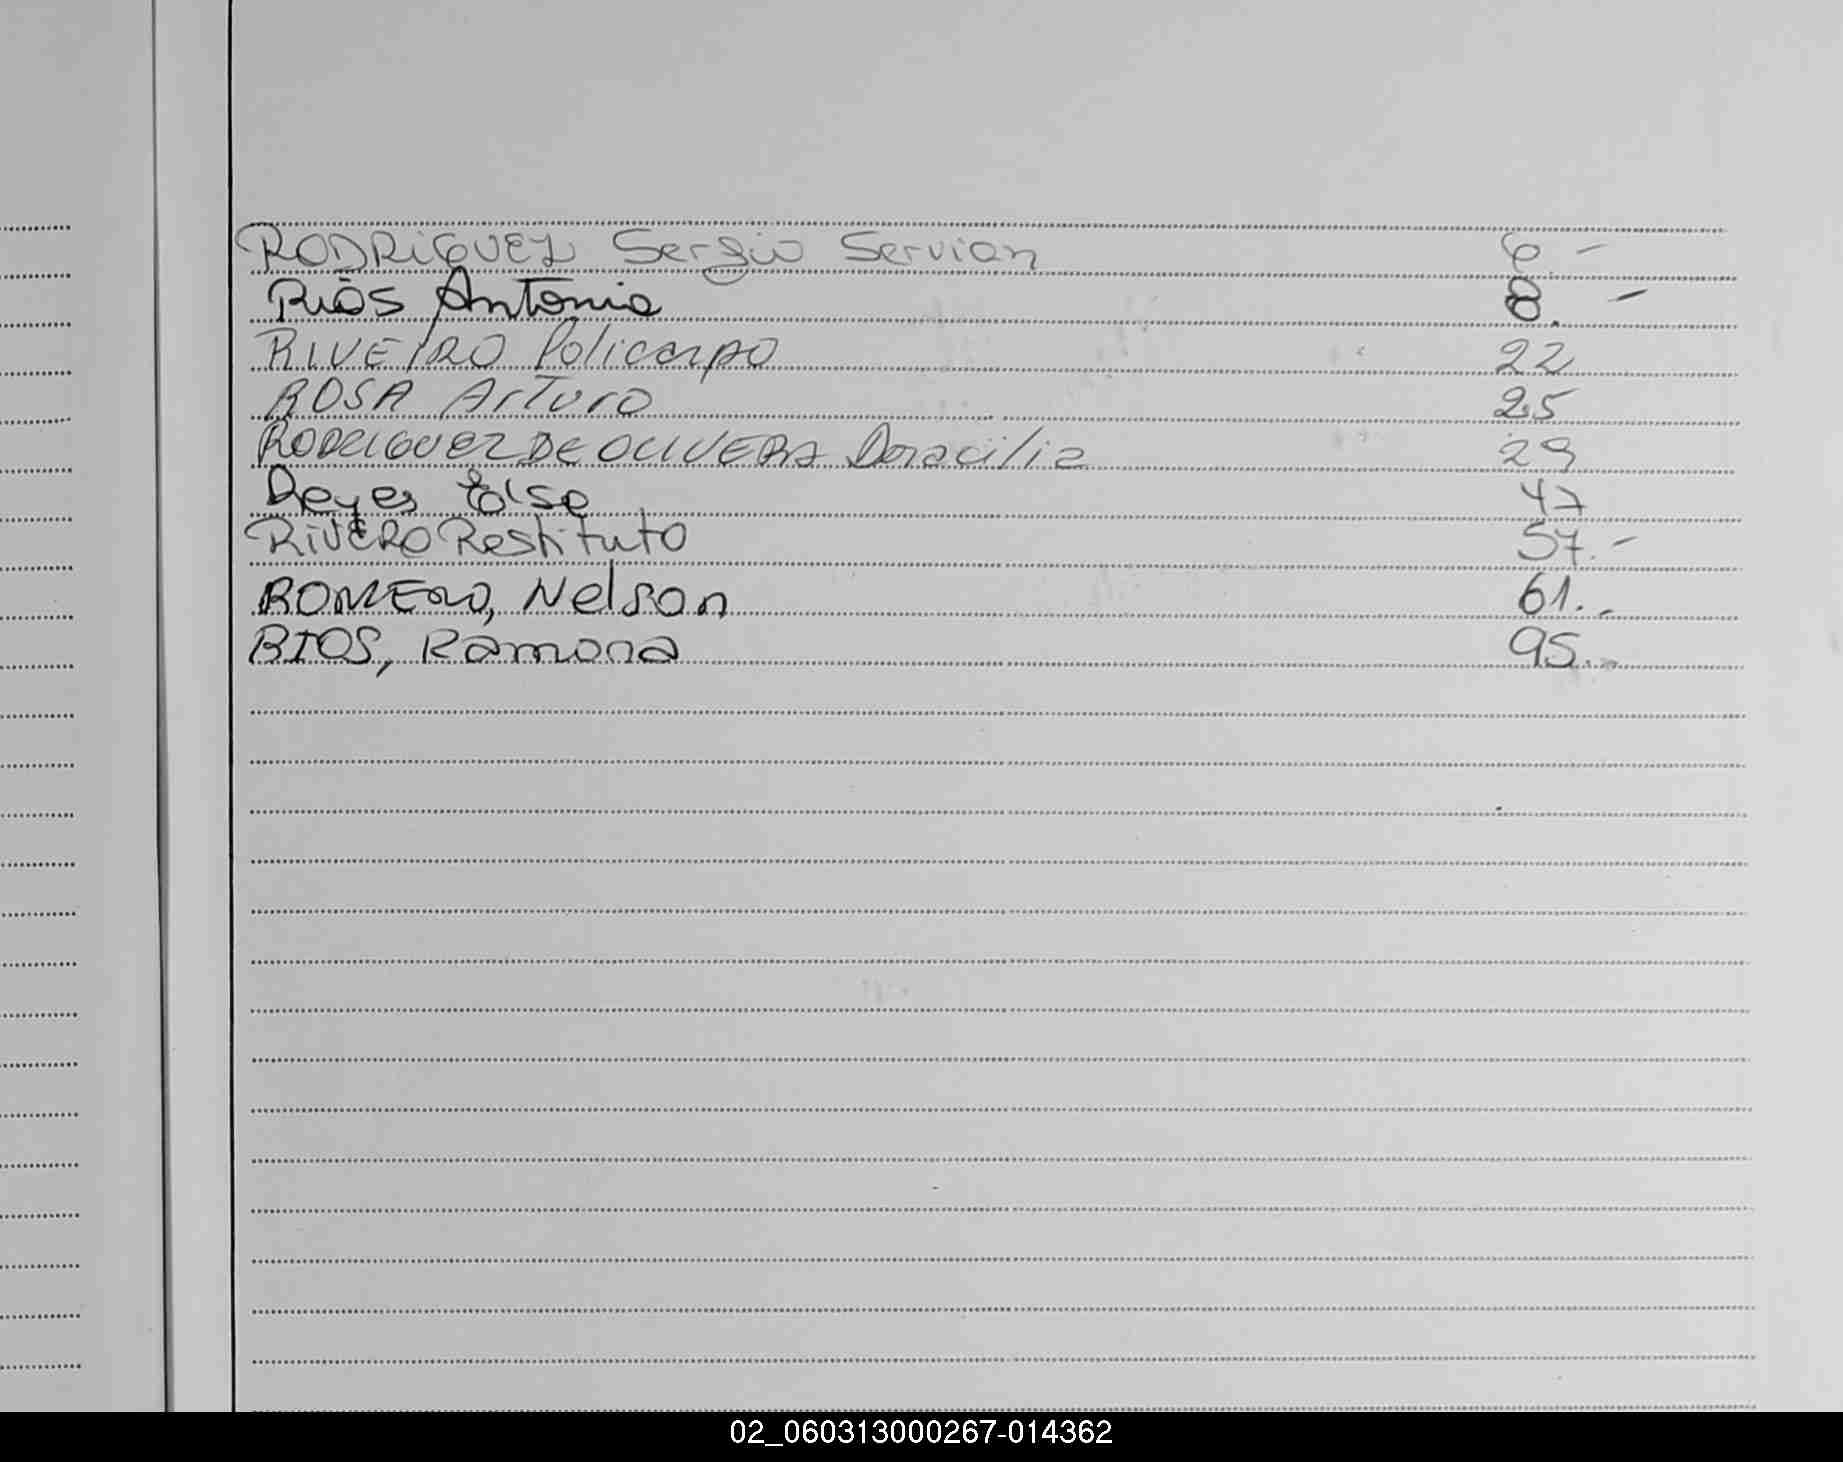 RODRIGUEZ Sergio Servian 6.-
Riós Antonio 8. -
RIVEIRO Policarpo 22
ROSA Arturo 25
RODRIGUEZ DE OLIVERA Doracilia 29
Reyes Elsa 47
RiVERO Restituto 57.-
ROMERO, Nelson 61.-
RIOS, Ramona 95.-
02_060313000267-014362